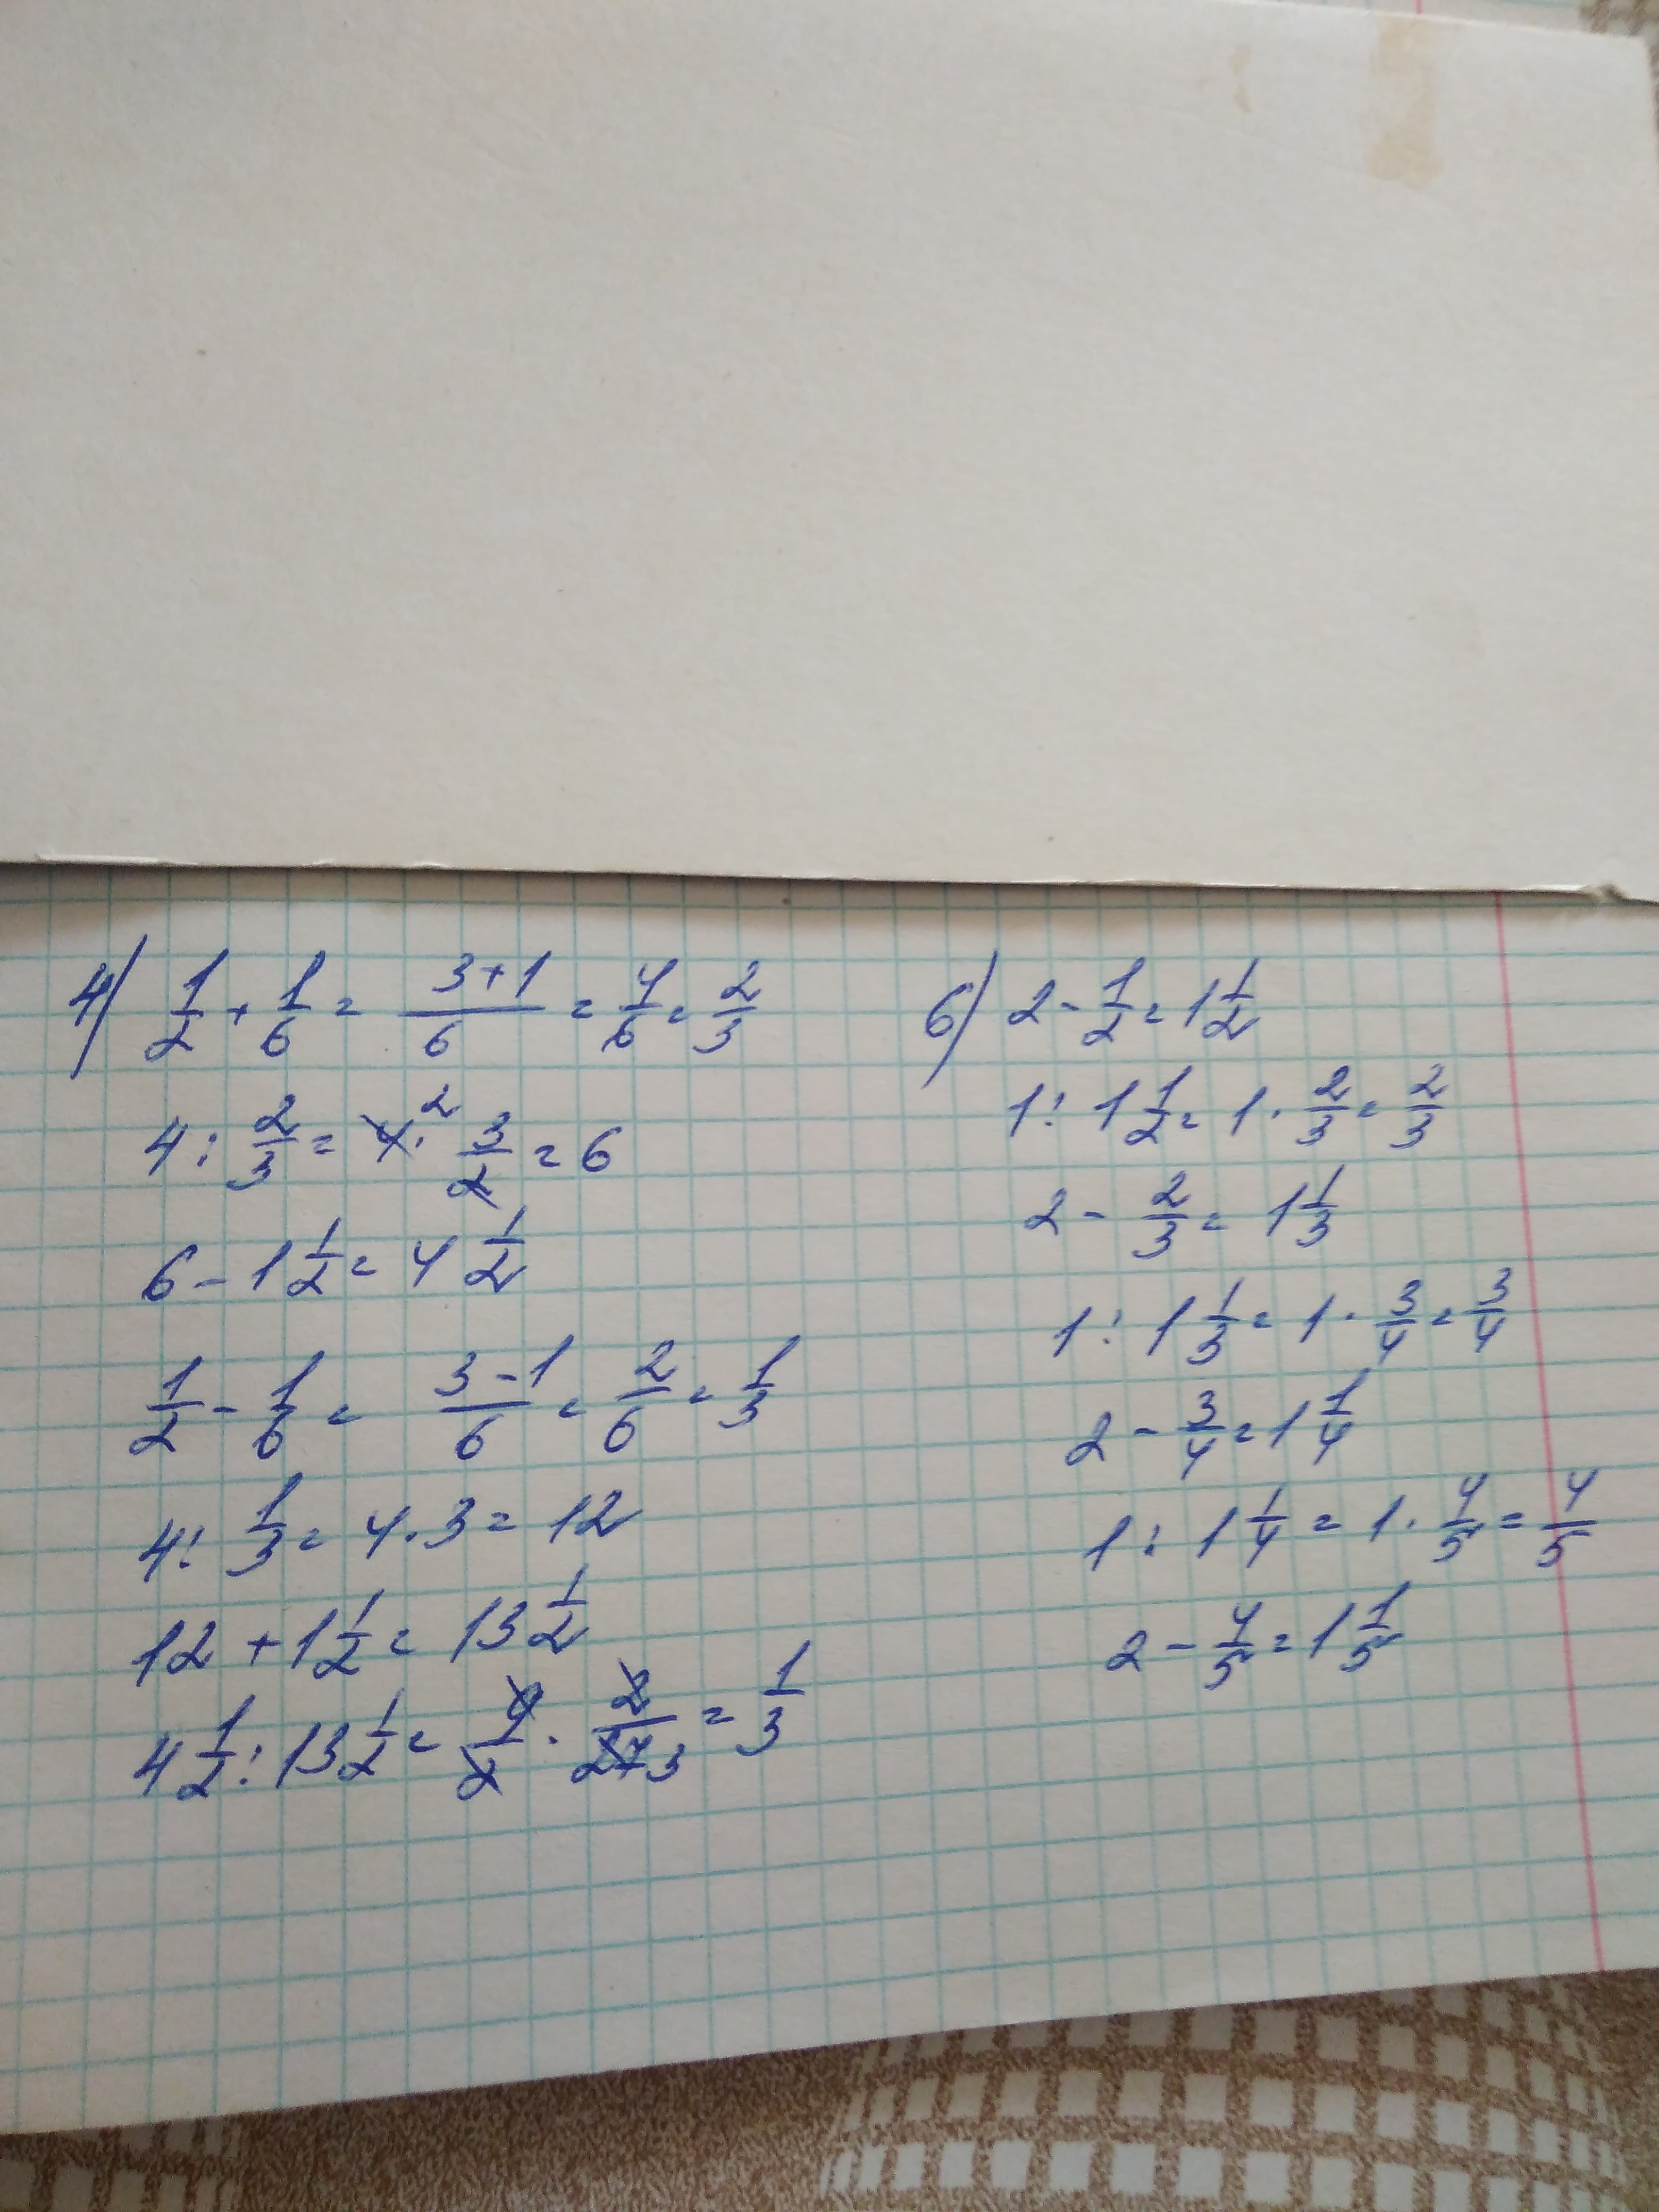 4) 1/2 + 1/6 = (3+1)/6 = 4/6 = 2/3
4 : 2/3 = 4 2 · 3/2 = 6
6 - 1 1/2 = 4 1/2
1/2 - 1/6 = (3-1)/6 = 2/6 = 1/3
4 : 1/3 = 4 · 3 = 12
12 + 1 1/2 = 13 1/2
4 1/2 : 13 1/2 = 9/2 · 2/27 3 = 1/3
6) 2 - 1/2 = 1 1/2
1 : 1 1/2 = 1 · 2/3 = 2/3
2 - 2/3 = 1 1/3
1 : 1 1/3 = 1 · 3/4 = 3/4
2 - 3/4 = 1 1/4
1 : 1 1/4 = 1 · 4/5 = 4/5
2 - 4/5 = 1 1/5